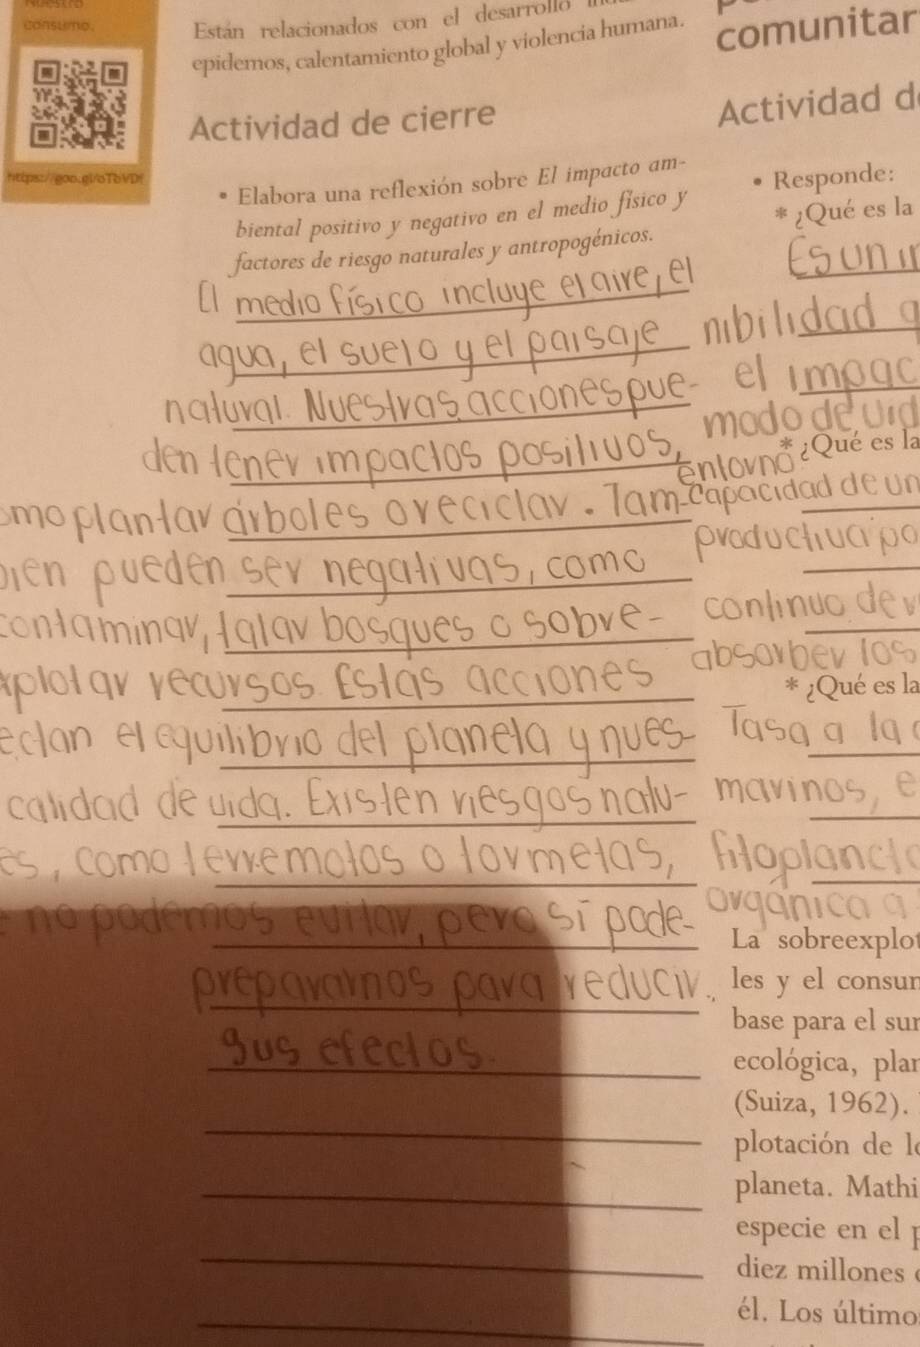 consumo.
https://goo.gl/oTbVDf
Están relacionados con el desarrollo
epidemos, calentamiento global y violencia humana.
Actividad de cierre
• Elabora una reflexión sobre El impacto am-
biental positivo y negativo en el medio físico y
factores de riesgo naturales y antropogénicos.
El medio físico incluye el aire, el
agua, el suelo y el paisaje
natural. Nuestras acciones pue-
den tener impactos positivos,
omo plantar árboles o reciclar. Tam-
bien pueden ser negativas, como
contaminar, talar bosques o sobre-
xplotar recursos. Estas acciones
ectan el equilibrio del planeta y nues-
calidad de vida. Existen riesgos natu-
es, como terremotos o tormetas,
e no podemos evitar, pero sí pode-
prepararnos para reducir
sus efectos.
comunitar
Actividad d
• Responde:
* ¿Qué es la
Es un in
nibilidad q
el impac
modo de vid
* ¿Qué es la
entorno
capacidad de un
productiva po
continuo de r
absorber los
* ¿Qué es la
Tasa a la c
marinos, e
fitoplancto
orgánica a
La sobreexplot
les y el consum
base para el sur
ecológica, plan
(Suiza, 1962).
plotación de l
planeta. Mathi
especie en el p
diez millones
él. Los último